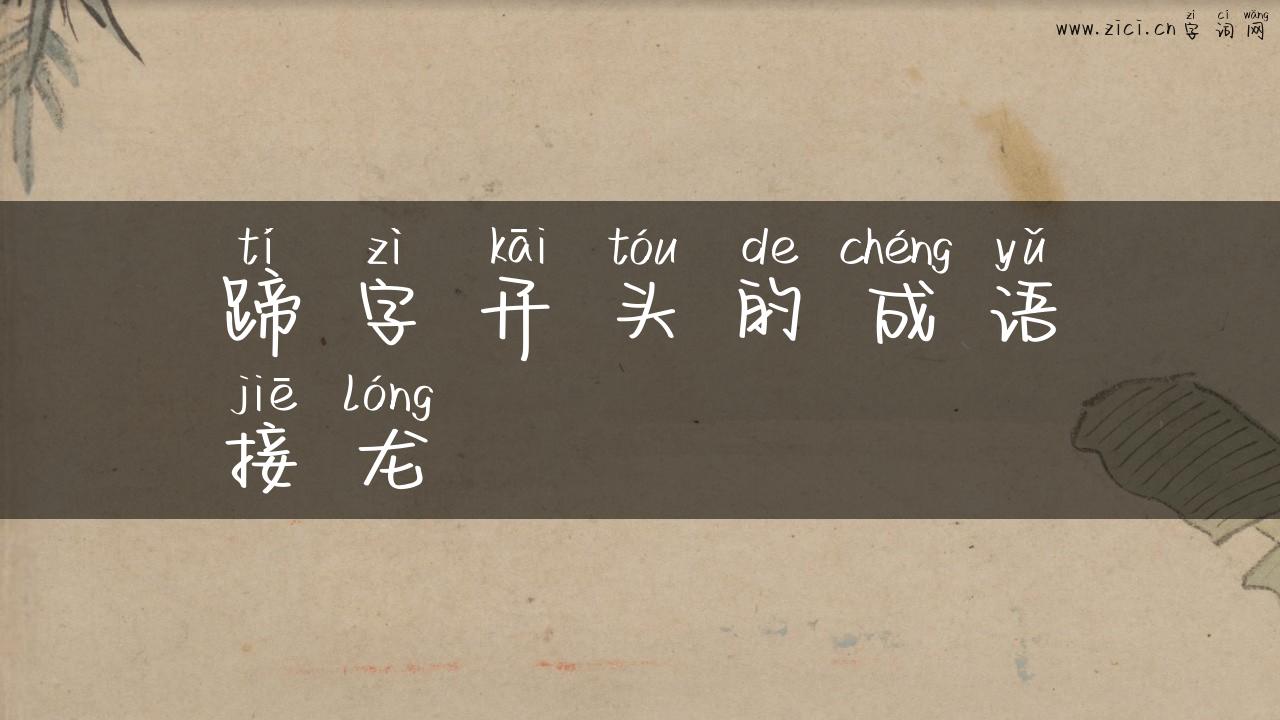 zì cí wǎng
www.zici.cn 字词网
tí zì kāi tóu de chéng yǔ
蹄字开头的成语
jiē lóng
接龙